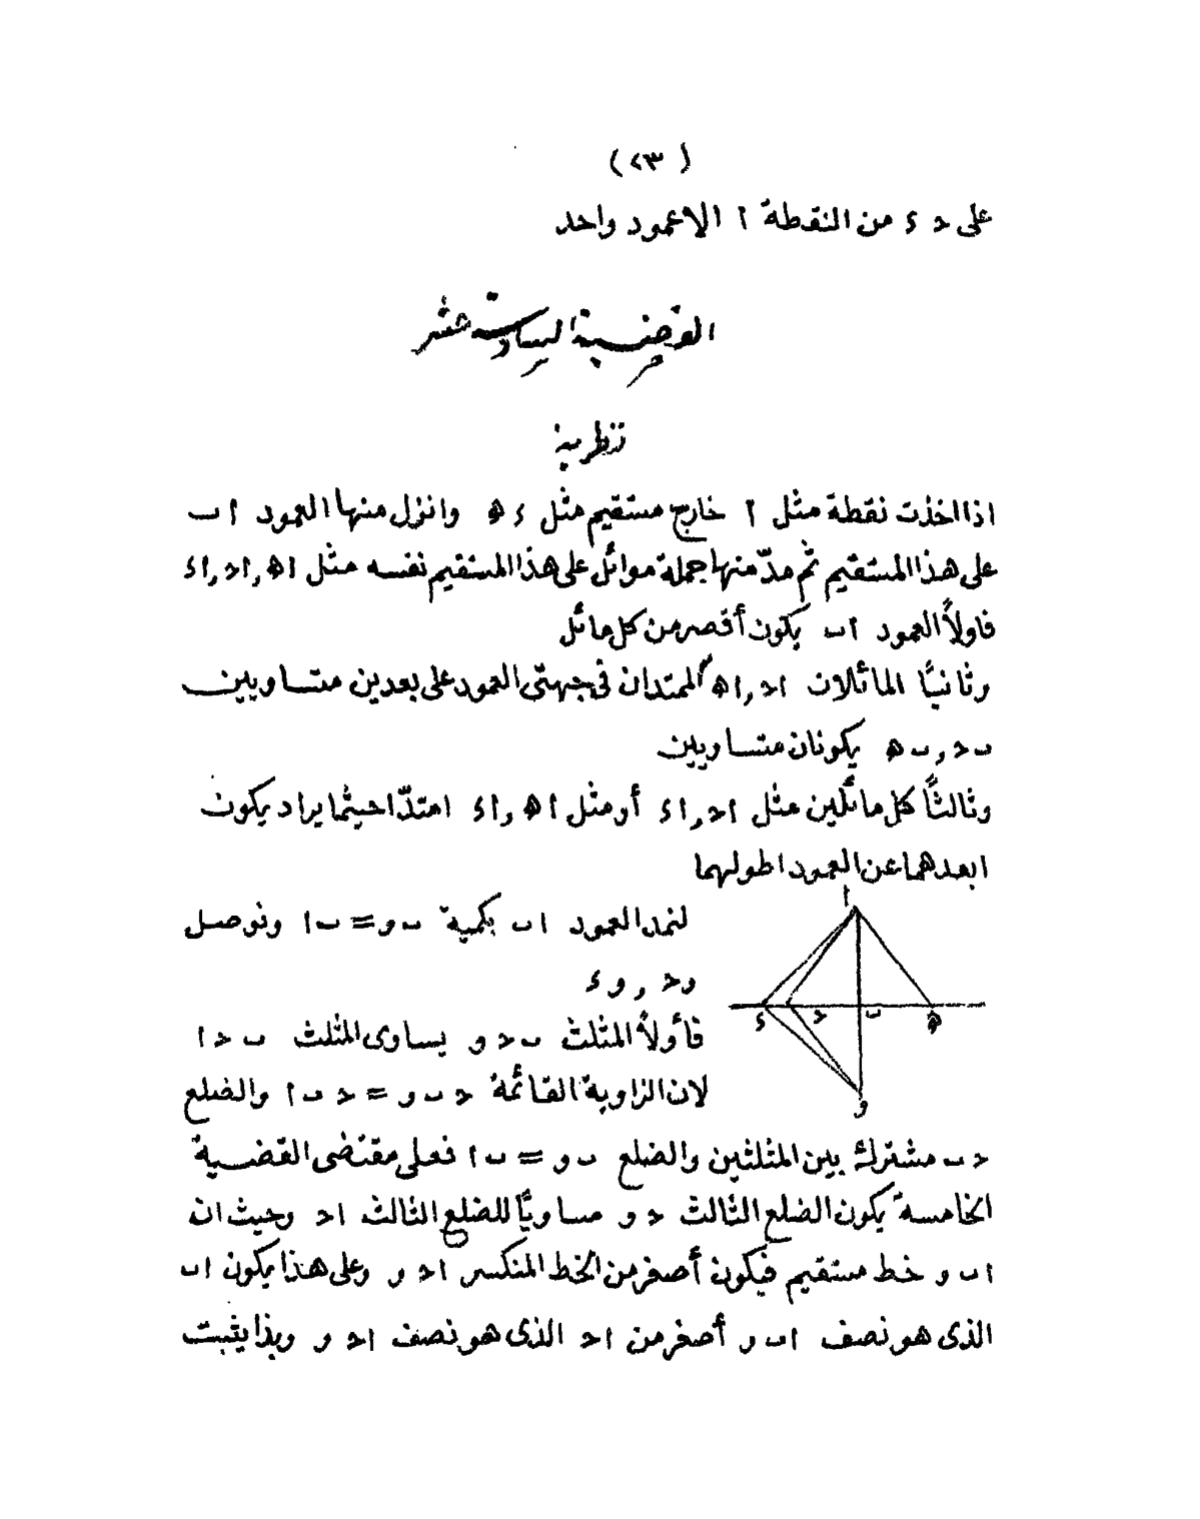 (٢٣)
على حـ ء من النقطة ا الاعمود واحد
القضية السادسة عشر
نظرية
اذا اخذت نقطة مثل ا خارج مستقيم مثل ء هـ وانزل منها العمود ا ب
على هذا المستقيم ثم مدّ منها جملة موائل على هذا المستقيم نفسه مثل ا هـ , ا حـ , ا ء
فاولاً العمود ا ب يكون أقصر من كل مائل
وثانياً المائلان ا حـ , ا هـ الممتدان فى جهتى العمود على بعدين متساويين
ب حـ , ب هـ يكونان متساويين
وثالثاً كل مائلين مثل ا حـ , ا ء أو مثل ا هـ , ا ء امتدّا حيثما يراد يكون
ابعدهما عن العمود اطولهما
لنمد العمود ا ب بكمية ب و = ب ا ونوصل
و حـ , و ء
فأولاً المثلث ب حـ و يساوى المثلث ب حـ ا
لان الزاوية القائمة حـ ب و = حـ ب ا والضلع
حـ ب مشترك بين المثلثين والضلع ب و = ب ا فعلى مقتضى القضية
الخامسة يكون الضلع الثالث حـ و مساويًا للضلع الثالث ا حـ وحيث ان
ا ب و خط مستقيم فيكون أصغر من الخط المنكسر ا حـ و وعلى هذا يكون ا ب
الذى هو نصف ا ب و أصغر من ا حـ الذى هو نصف ا حـ و وبذا يثبت
ا
ء حـ ب هـ
و